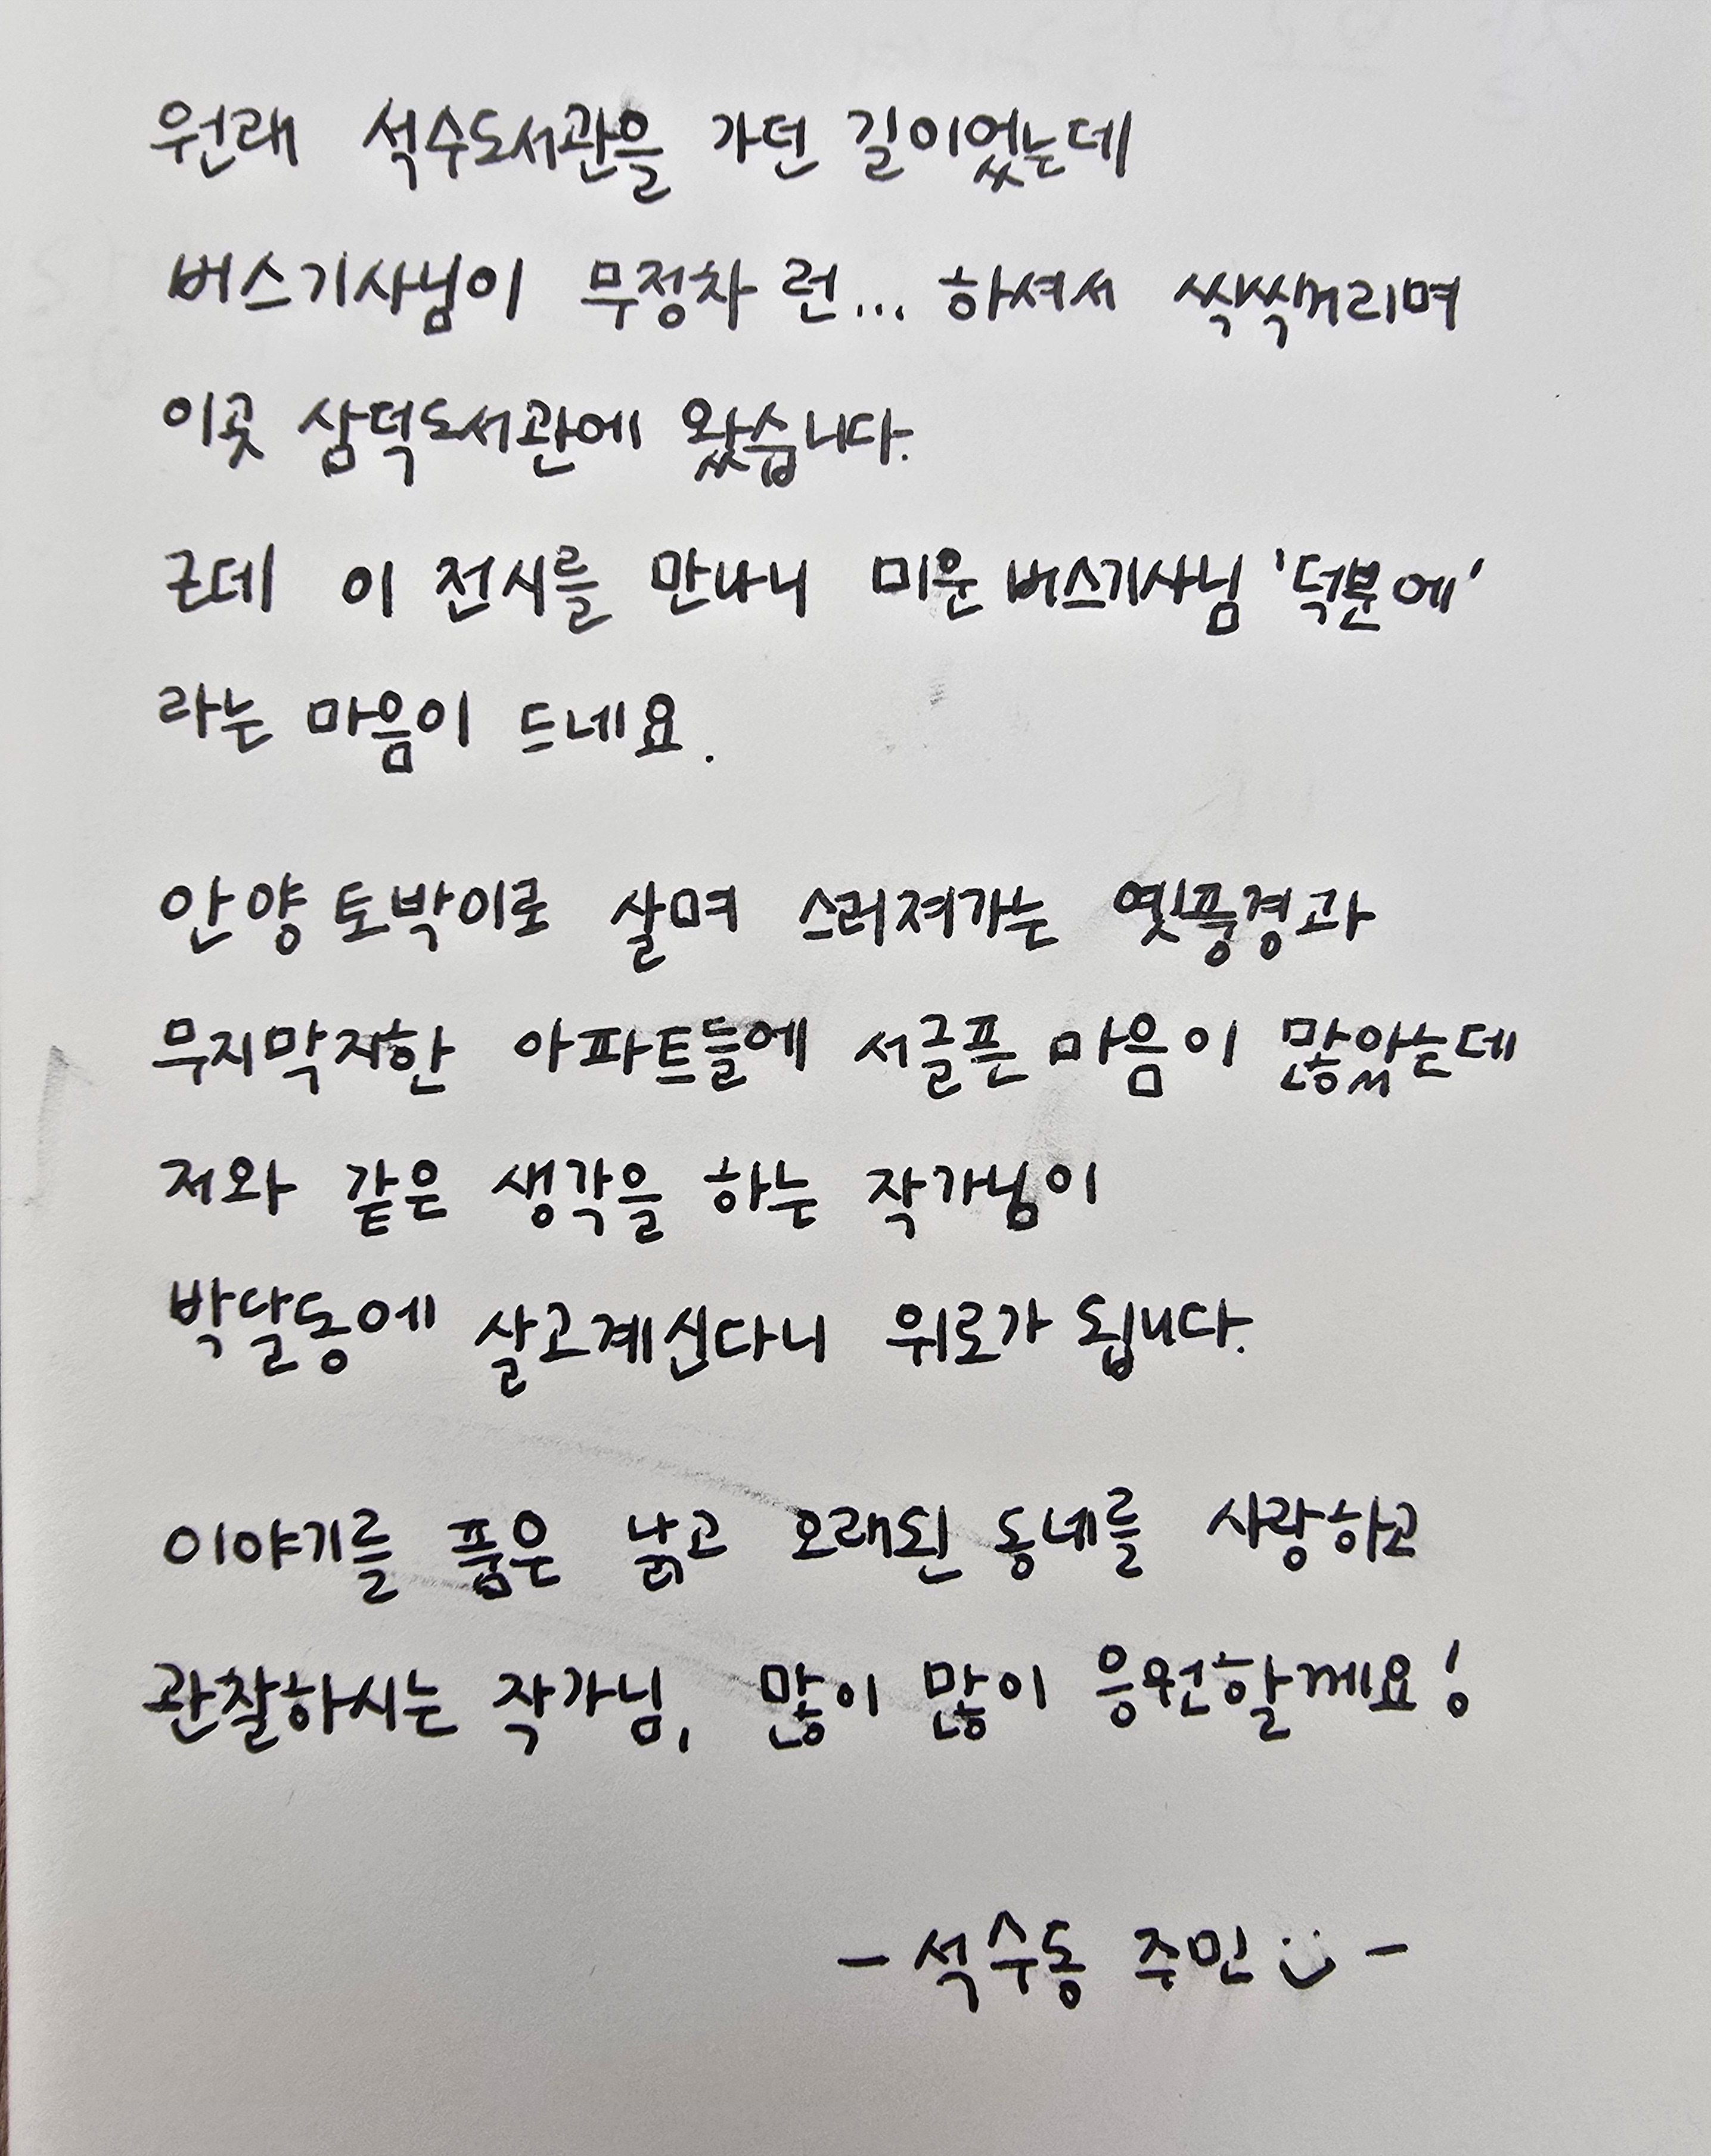 원래 석수도서관을 가던 길이었는데
버스기사님이 무정차 런... 하셔서 씩씩꺼리며
이곳 삼덕도서관에 왔습니다.
근데 이 전시를 만나니 미운 버스기사님 '덕분에'
라는 마음이 드네요.
안양 토박이로 살며 스러져가는 옛풍경과
무지막지한 아파트들에 서글픈 마음이 많았는데
저와 같은 생각을 하는 작가님이
박달동에 살고계신다니 위로가 됩니다.
이야기를 품은 낡고 오래된 동네를 사랑하고
관찰하시는 작가님, 많이 많이 응원할께요!
- 석수동 주민 -